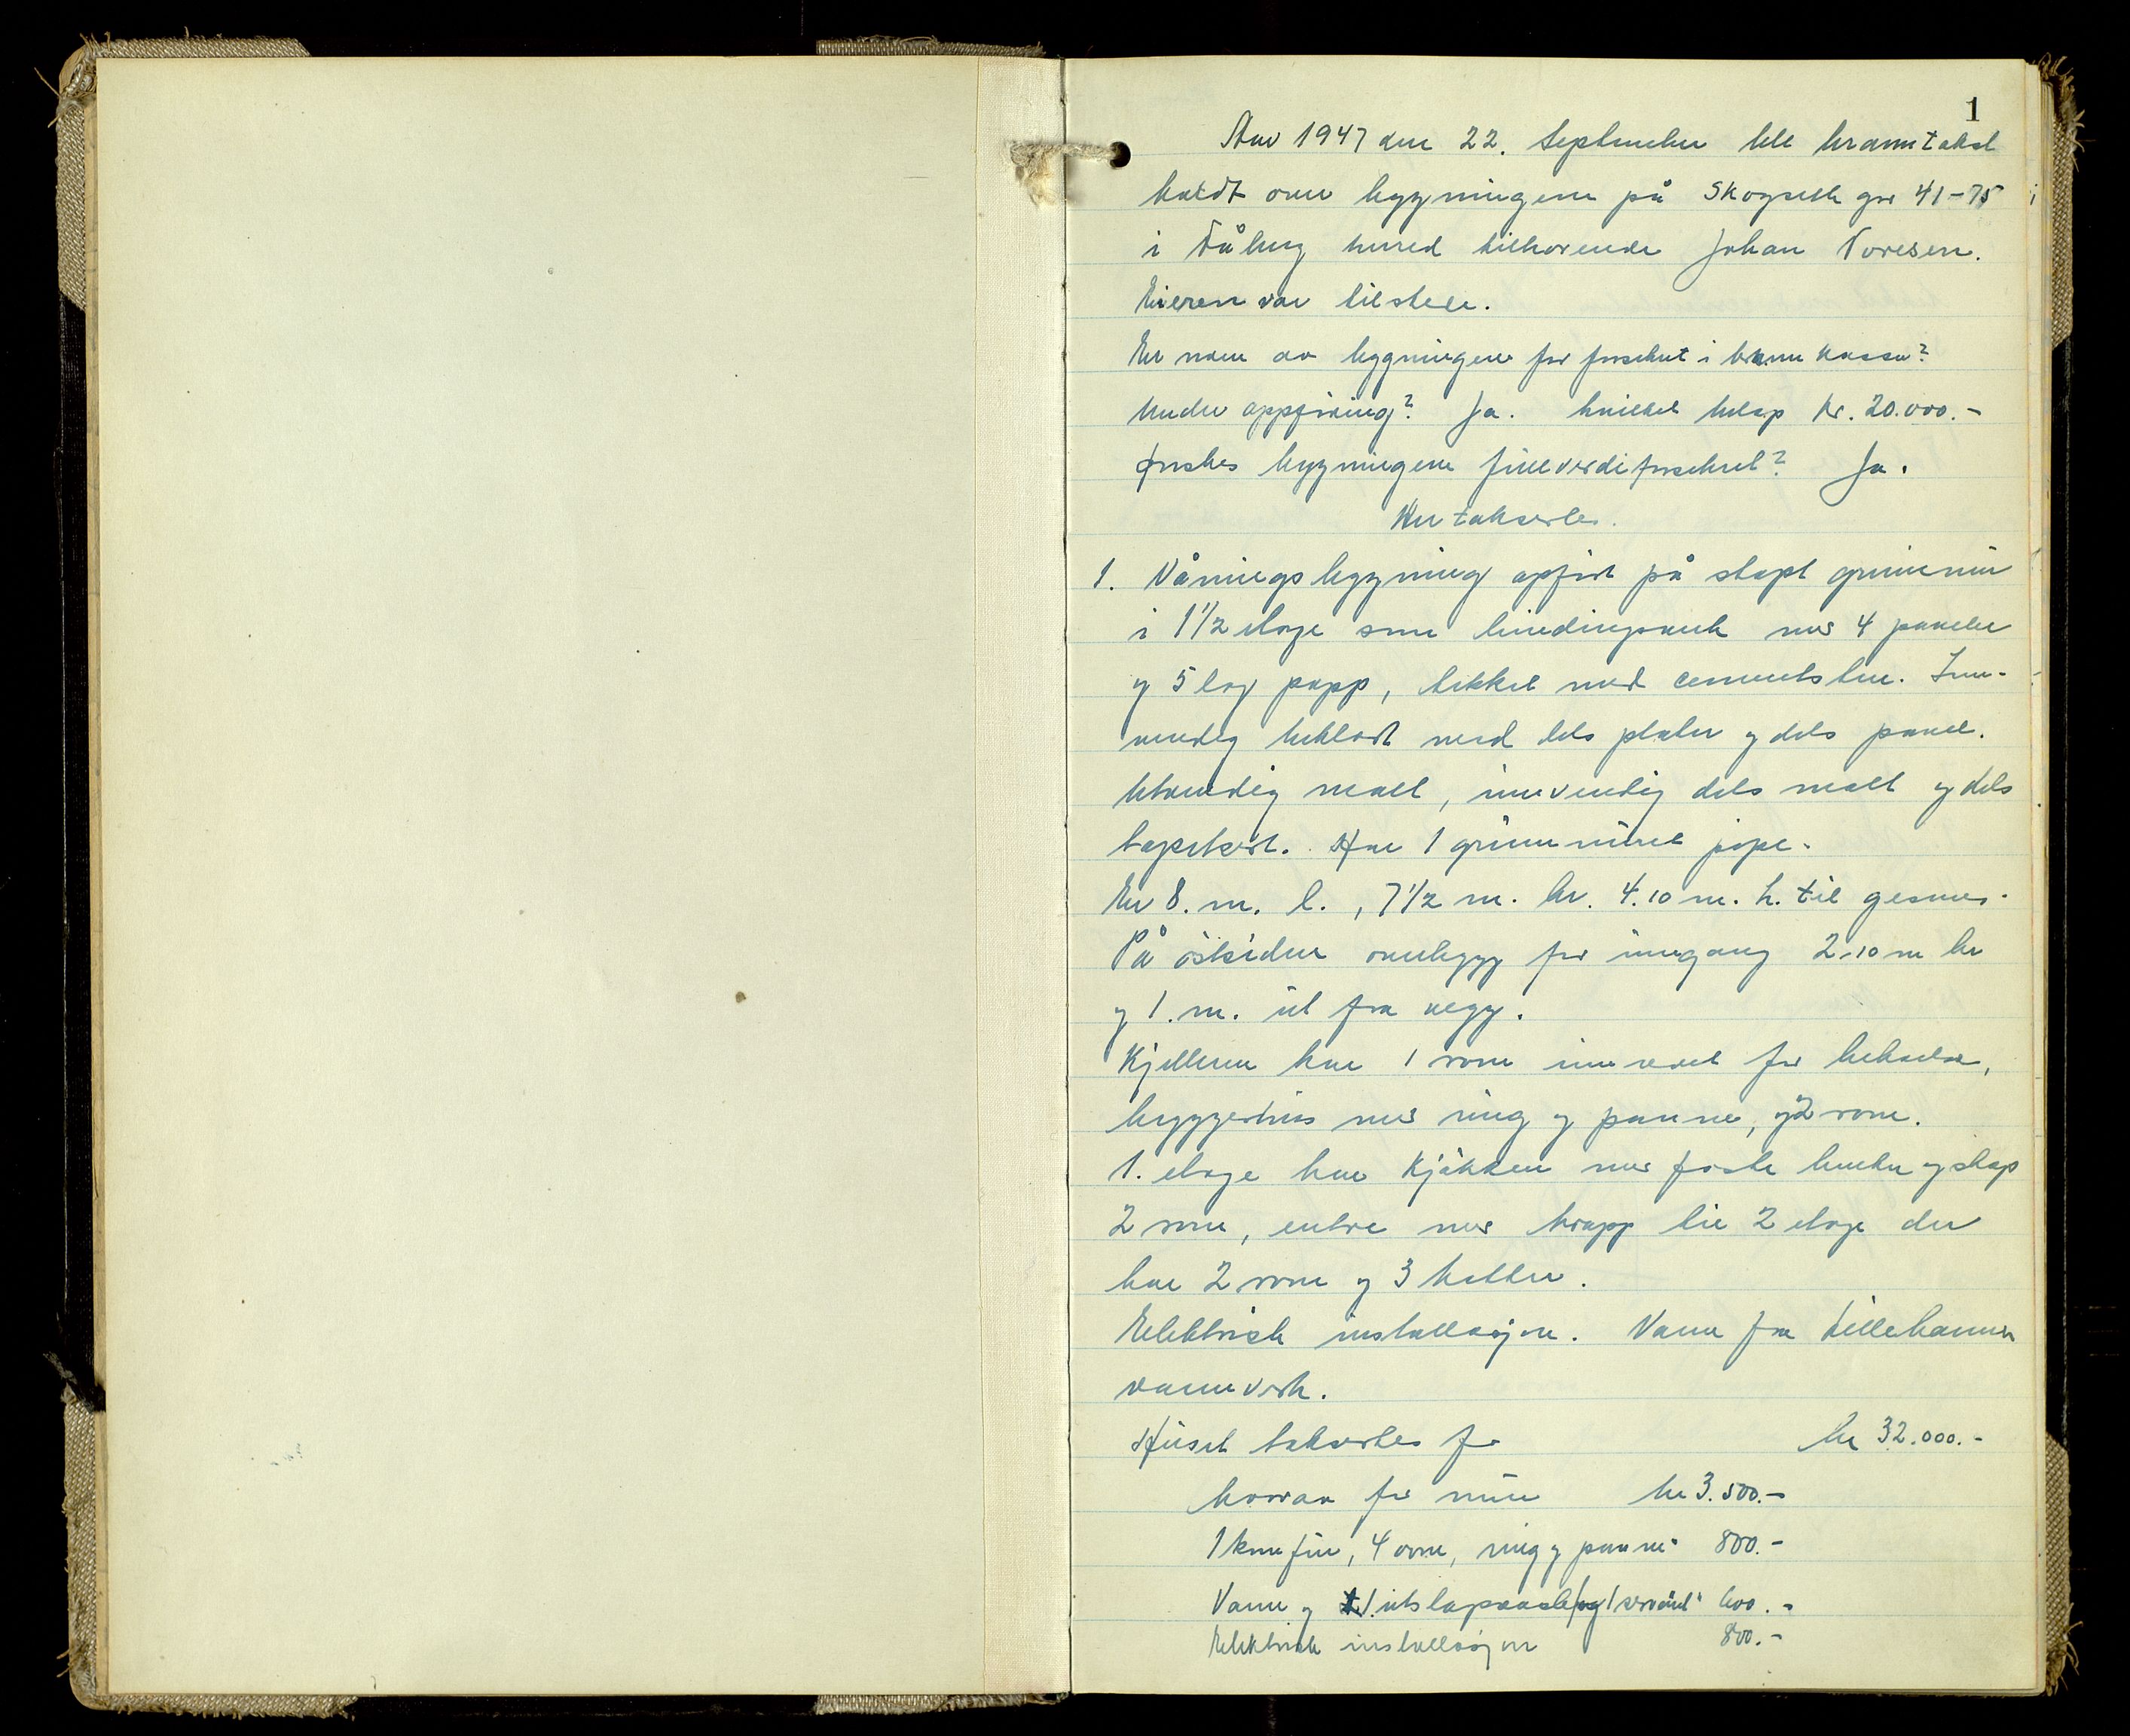 1
Anr 1947 den 22. September ble branntakst
holdt over bygningene på Skogseth gnr 41-75
i Fåberg herred tilhørende Johan Toresen.
Eieren var tilstede.
Er noen av bygningene før forsikret i brannkasse?
Under oppføring? Ja. hvilket beløp Kr. 20.000.-
Ønskes bygningene fullverdiforsikret? Ja.
Der taksertes.
1. Våningsbygning opført på støpt grunnmur
i 1 1/2 etage som bindingsverk med 4 paneler
og 5 lag papp, tekket med cementsten. Inn-
vendig bekledt med dels plater og dels panel.
Utvendig malt, innvendig dels malt og dels
tapetsert. Har 1 grunnmuret pipe.
Er 8. m. l., 7 1/2 m. br. 4.10 m. h. til gesims.
På östsiden overbygg for inngang 2.10 m br
og 1. m. ut fra vegg.
Kjelleren har 1 rom innredet for beboelse,
bryggerhus med ring og panne, og 2 rom.
1. etage har kjökken med faste benker og skap
2 rom, entre med trapp til 2 etage der
har 2 rom og 3 kotter.
Elektrisk installasjon. Vann fra Lillehammer
vannverk.
Huset takseres for kr 32.000.-
hvorav for mur kr 3.500.-
1 komfur, 4 ovne, ring og panne " 800.-
Vann og 1 utslagsvask og 1 servant " 600.-
Elektrisk installasjon 800.-